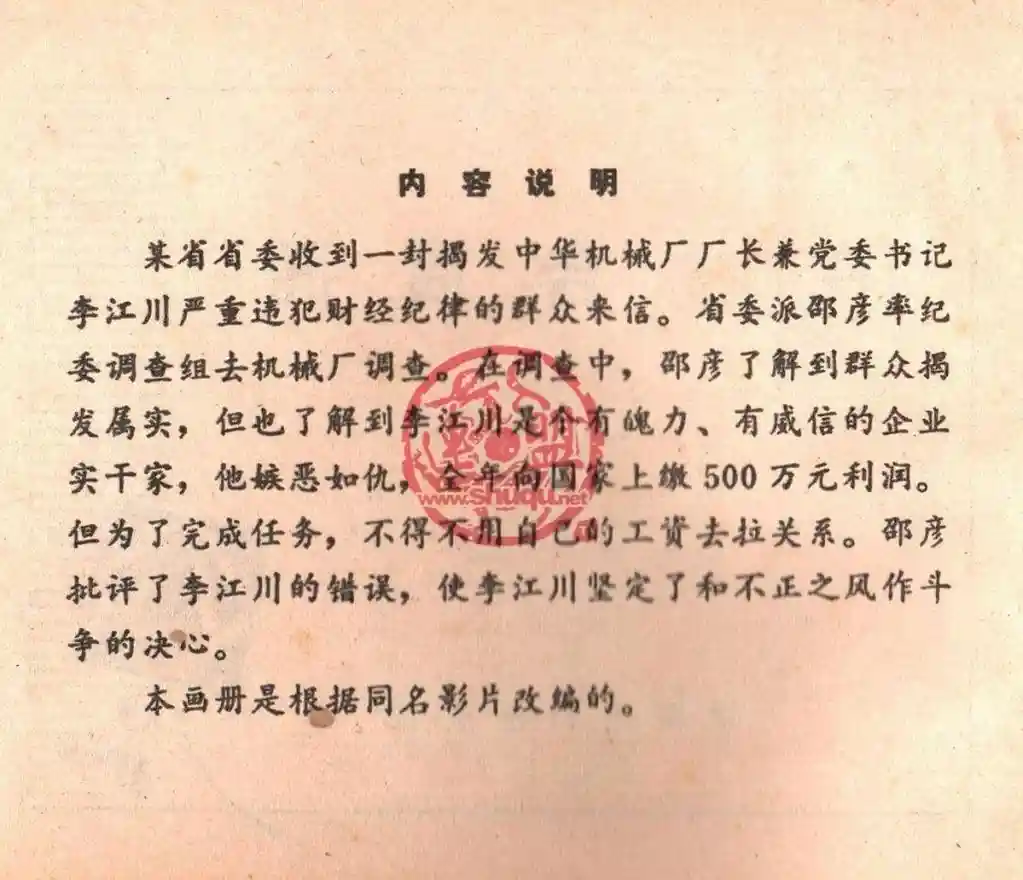 内容说明
某省省委收到一封揭发中华机械厂厂长兼党委书记
李江川严重违犯财经纪律的群众来信。省委派邵彦率纪
委调查组去机械厂调查。在调查中，邵彦了解到群众揭
发属实，但也了解到李江川是个有魄力、有威信的企业
实干家，他嫉恶如仇，全年向国家上缴500万元利润。
www.shuqu.net
但为了完成任务，不得不用自己的工资去拉关系。邵彦
批评了李江川的错误，使李江川坚定了和不正之风作斗
争的决心。
本画册是根据同名影片改编的。